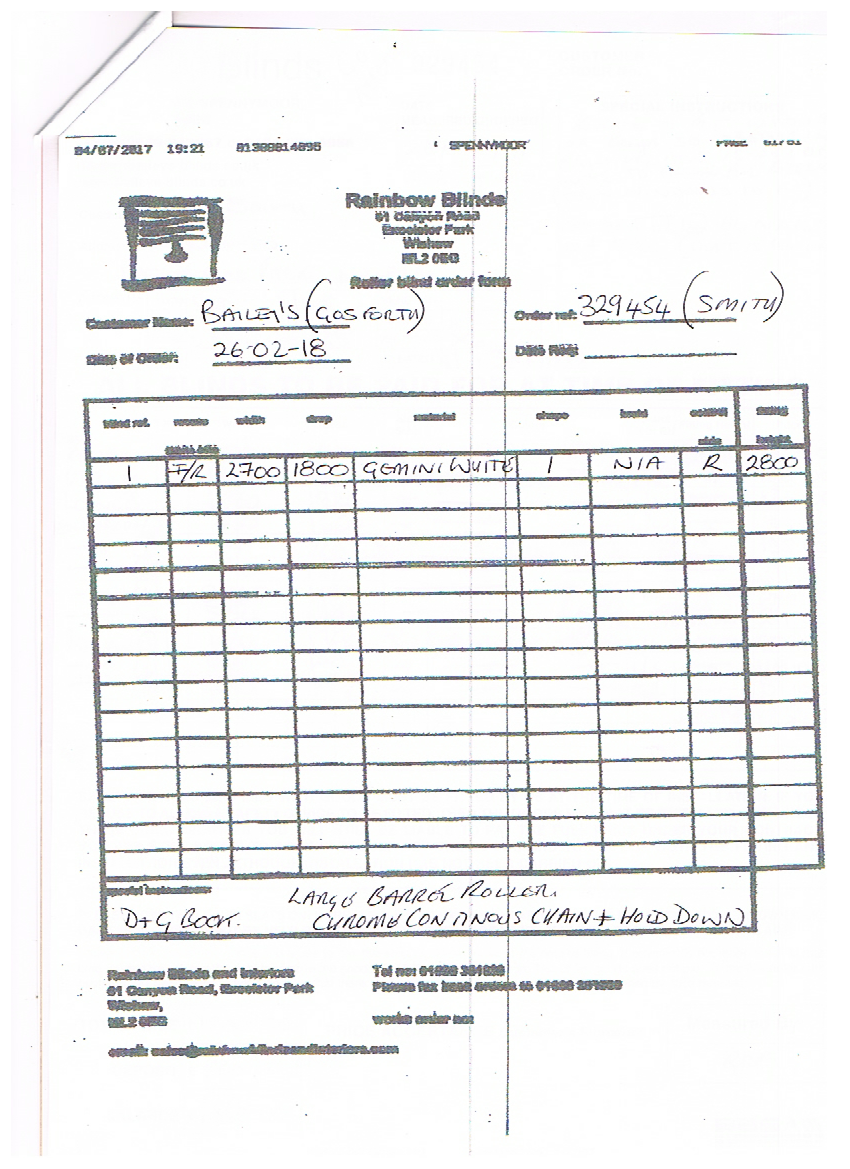 04/07/2017 19:21 01388814895 SPENNYMOOR PAGE 01/01
Rainbow Blinds
61 Canyon Road
Excelsior Park
Wishaw
ML2 0EG
Roller blind order form
Customer Name: BAILEY'S (GOSFORTH) Order ref: 329454 (SMITH)
Date of Order: 26-02-18 Date Req:
blind ref. width drop material shape control
side height
1 F/R 2700 1800 GEMINI WHITE 1 N/A R 2800
special instructions: LARGE BARREL ROLLER.
D+G BOOK. CHROME CONTINOUS CHAIN + HOLD DOWN
Rainbow Blinds and Interiors Tel no:
61 Canyon Road, Excelsior Park Please fax back orders to
Wishaw,
ML2 0EG works order no:
email: sales@rainbowblindsandinteriors.com